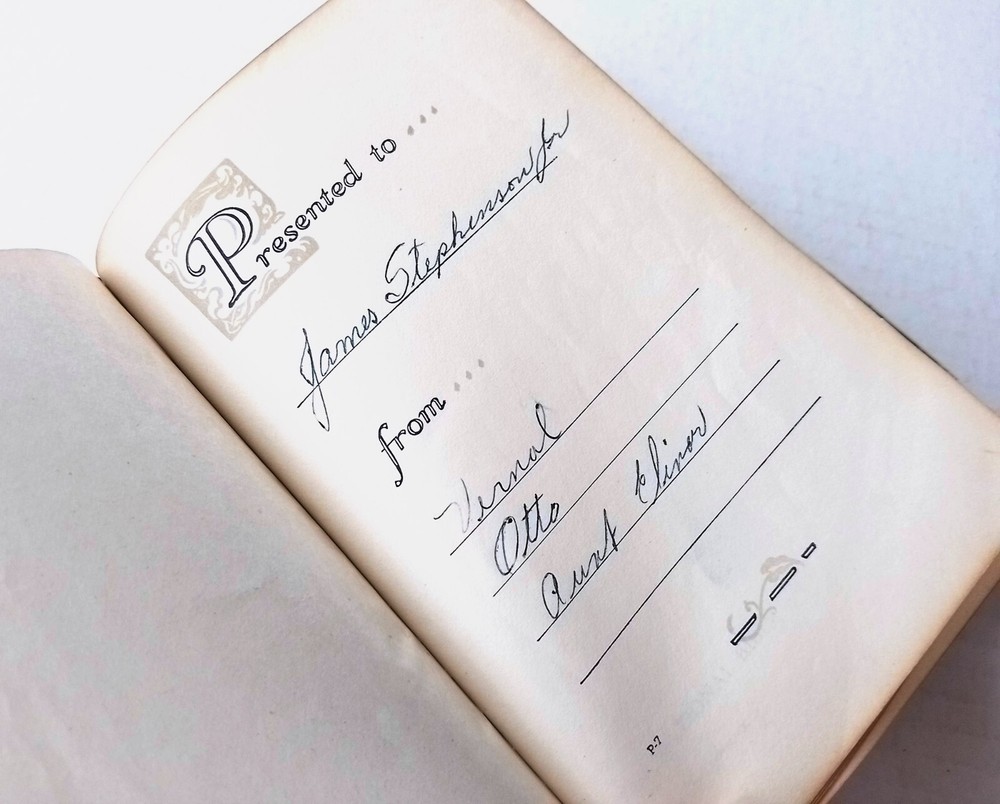 Presented to ...
James Stephenson Jr
from ...
Vernal
Otto
Aunt Elinor
P-7